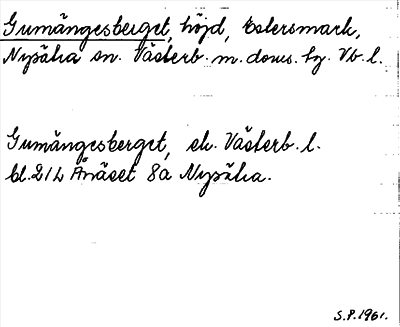 Gumängesberget, höjd, Estersmark,
Nysätra sn. Västerb. m. doms. hy. Vb. l.
Gumängesberget, ek. Västerb. l.
bl. 21L Ånäset 8a Nysätra.
S.P. 1961.